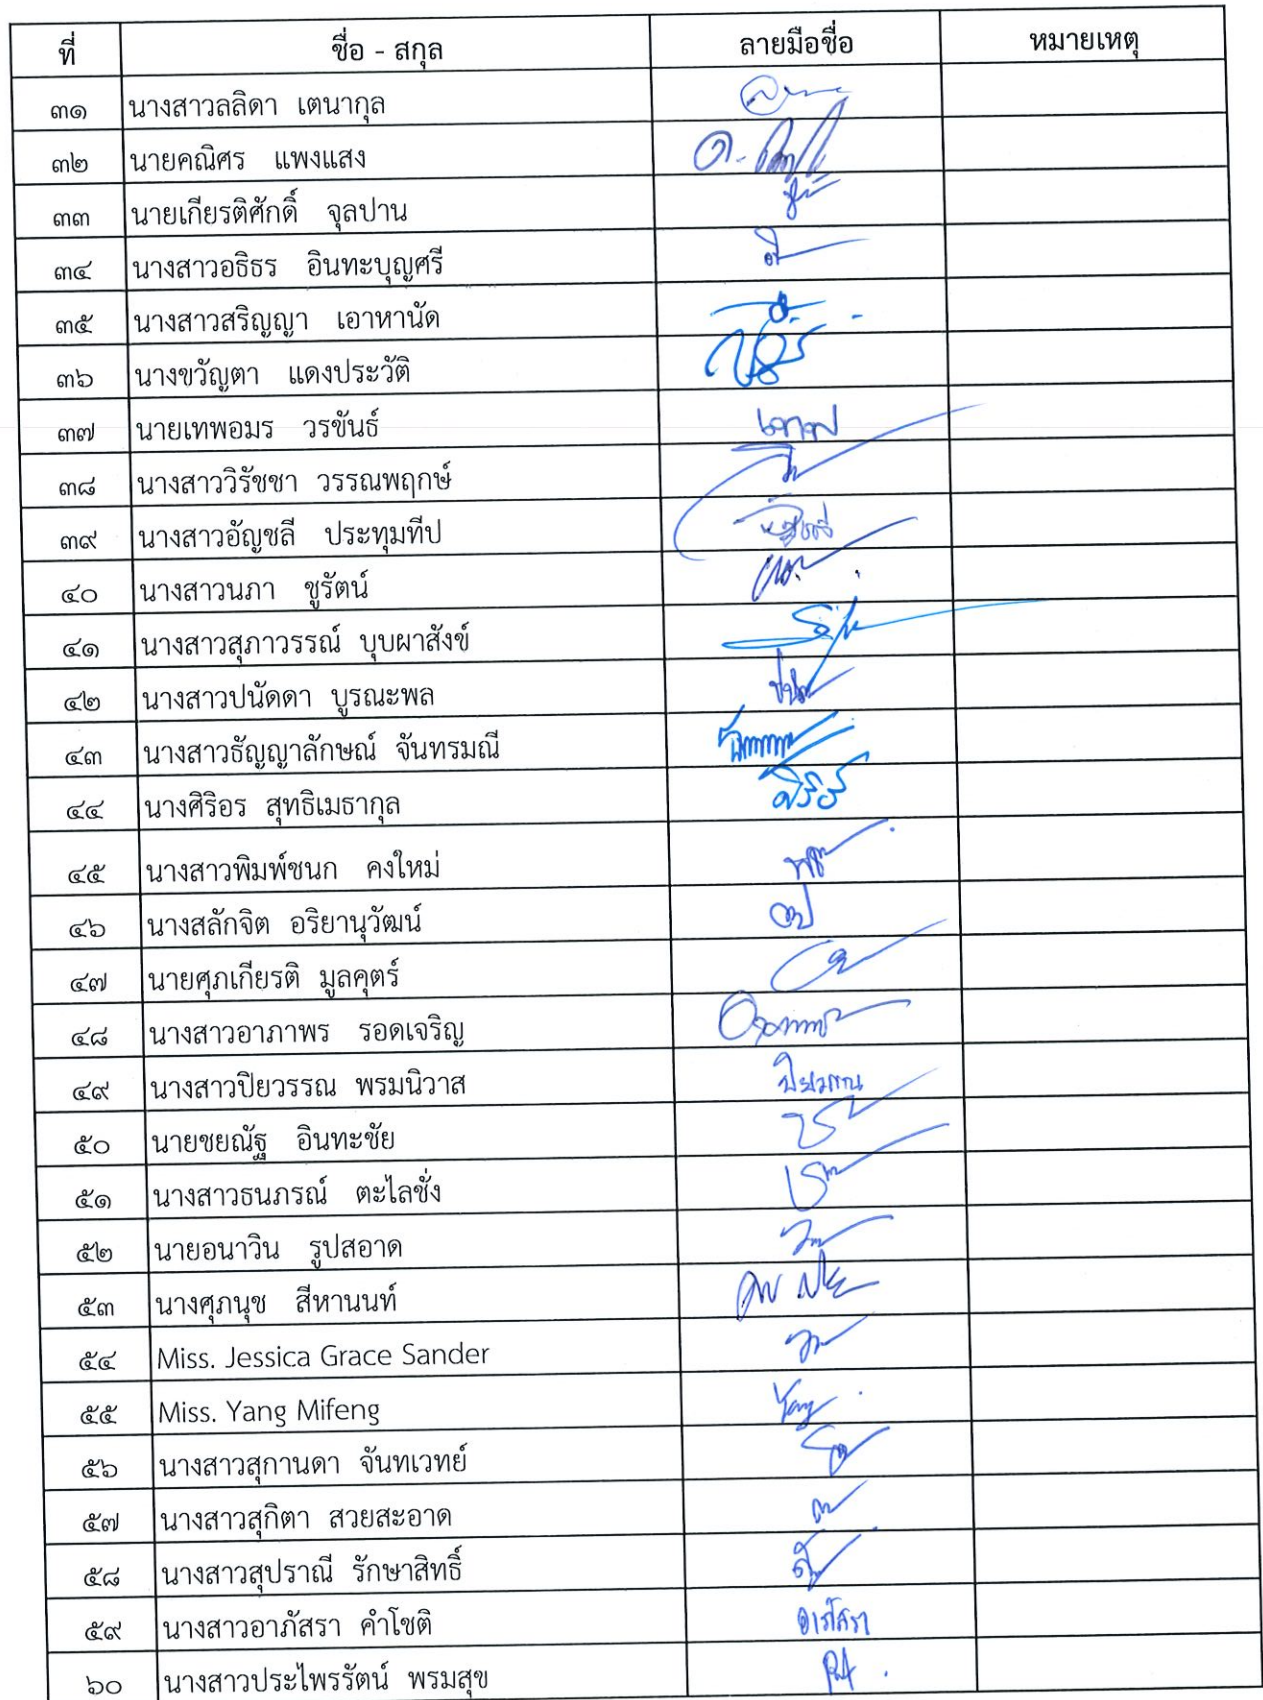 ที่ ชื่อ - สกุล ลายมือชื่อ หมายเหตุ
๓๑ นางสาวลลิดา เตนากุล
๓๒ นายคณิศร แพงแสง
๓๓ นายเกียรติศักดิ์ จุลปาน
๓๔ นางสาวอธิธร อินทะบุญศรี
๓๕ นางสาวสริญญา เอาหานัด
๓๖ นางขวัญตา แดงประวัติ
๓๗ นายเทพอมร วรขันธ์ เทพ
๓๘ นางสาววิรัชชา วรรณพฤกษ์
๓๙ นางสาวอัญชลี ประทุมทีป
๔๐ นางสาวนภา ชูรัตน์
๔๑ นางสาวสุภาวรรณ์ บุบผาสังข์
๔๒ นางสาวปนัดดา บูรณะพล
๔๓ นางสาวธัญญาลักษณ์ จันทรมณี
๔๔ นางศิริอร สุทธิเมธากุล
๔๕ นางสาวพิมพ์ชนก คงใหม่
๔๖ นางสลักจิต อริยานุวัฒน์
๔๗ นายศุภเกียรติ มูลคุตร์
๔๘ นางสาวอาภาพร รอดเจริญ
๔๙ นางสาวปิยวรรณ พรมนิวาส ปิยวรรณ
๕๐ นายชยณัฐ อินทะชัย
๕๑ นางสาวธนภรณ์ ตะไลชั่ง
๕๒ นายอนาวิน รูปสอาด
๕๓ นางศุภนุช สีหานนท์
๕๔ Miss. Jessica Grace Sander
๕๕ Miss. Yang Mifeng Yang
๕๖ นางสาวสุกานดา จันทเวทย์
๕๗ นางสาวสุกิตา สวยสะอาด
๕๘ นางสาวสุปราณี รักษาสิทธิ์
๕๙ นางสาวอาภัสรา คำโชติ อาภัสรา
๖๐ นางสาวประไพรรัตน์ พรมสุข